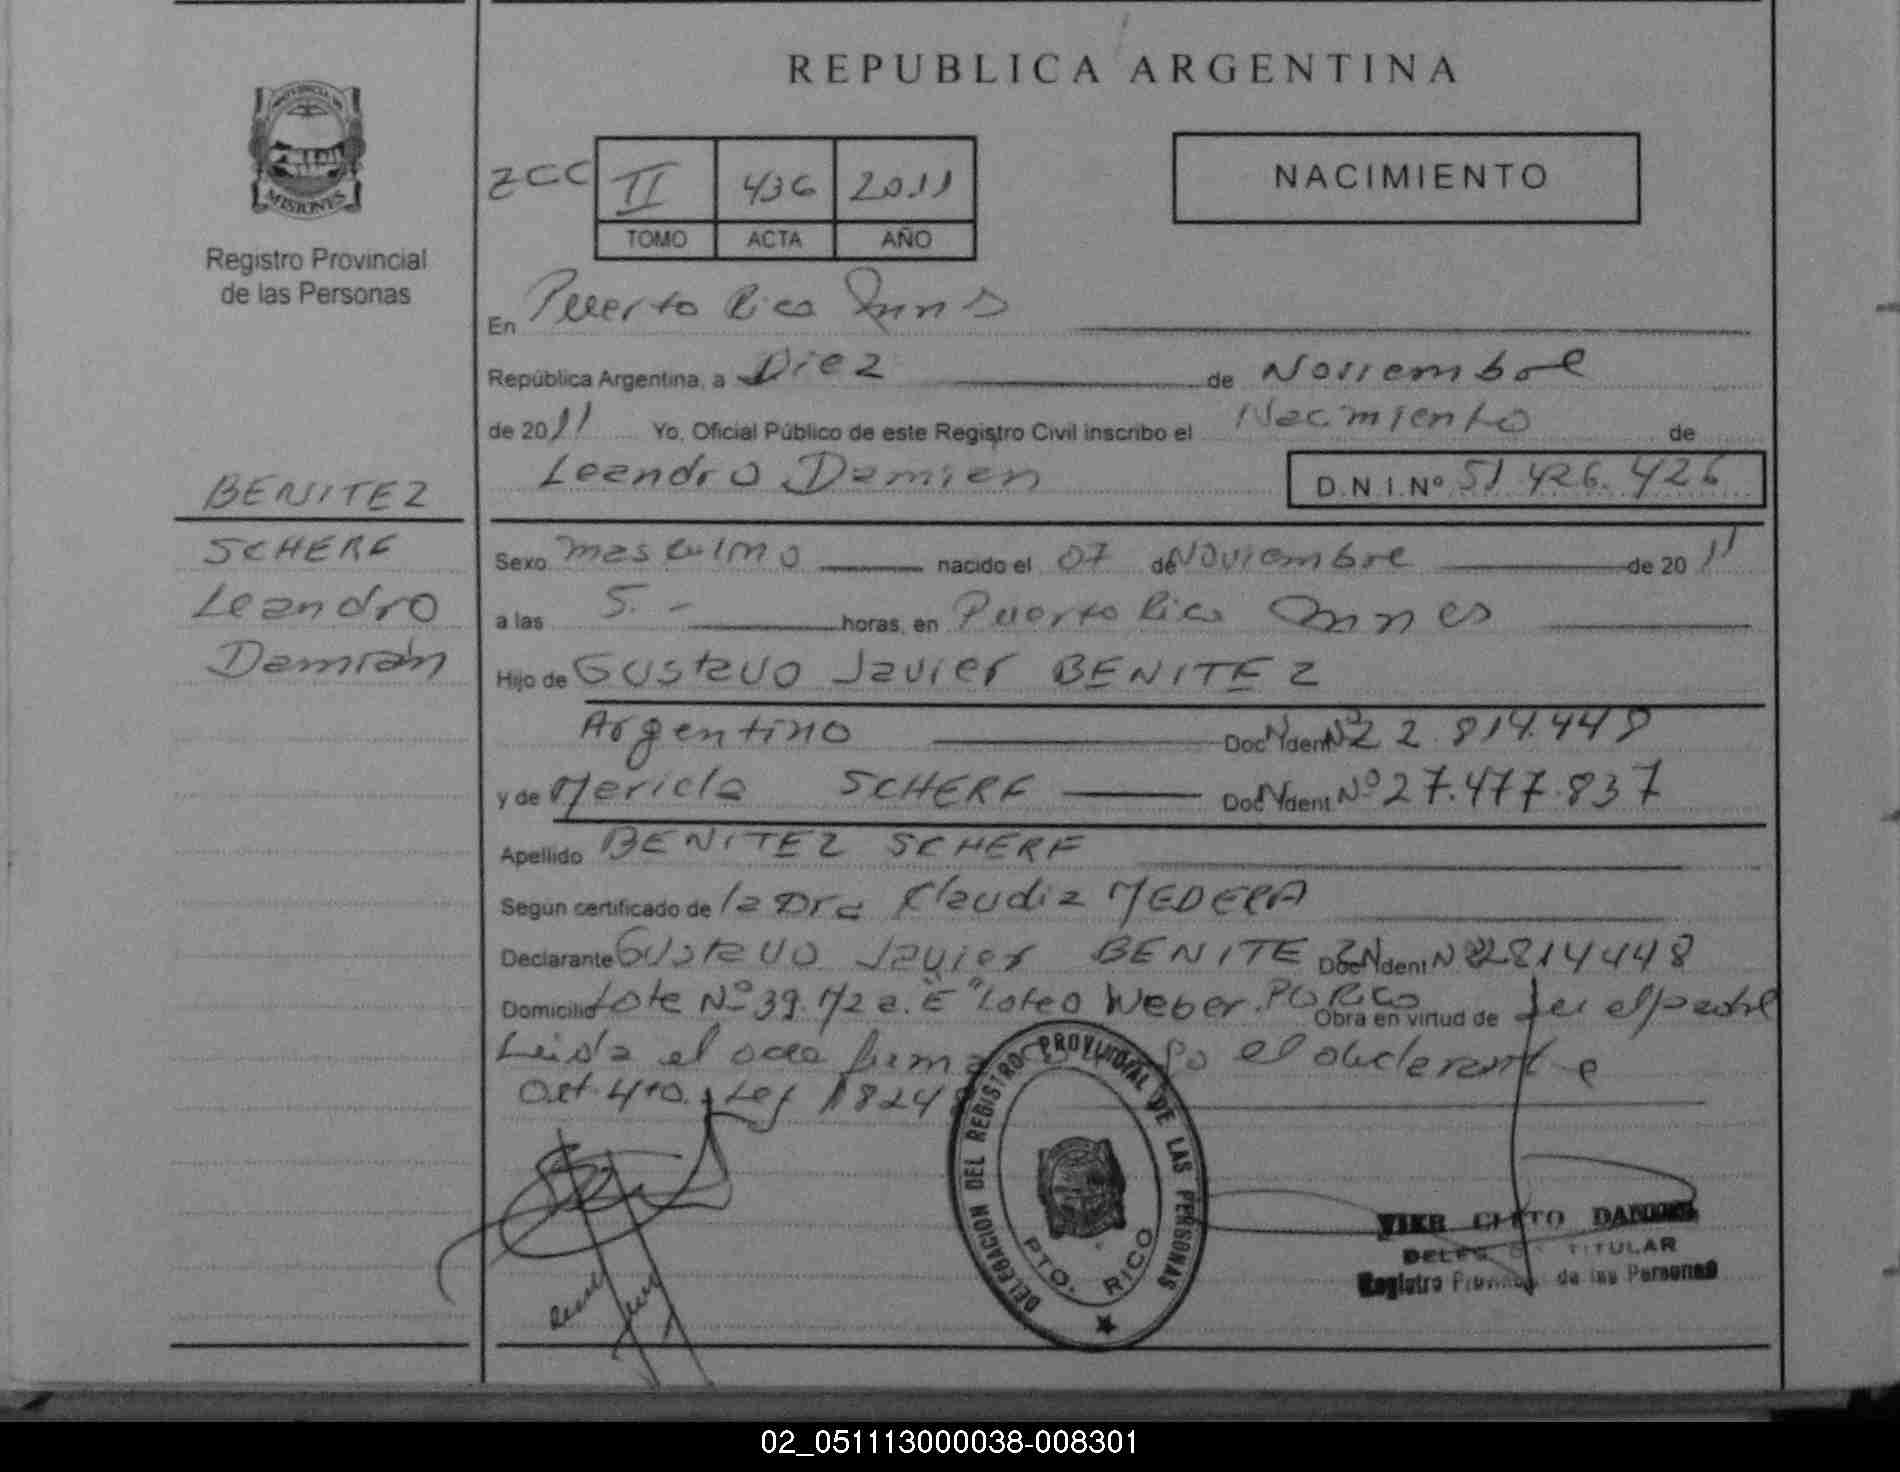 REPUBLICA ARGENTINA
MISIONES
Registro Provincial
de las Personas
ZCC II 436 2011
TOMO ACTA AÑO
NACIMIENTO
En Puerto Rico
República Argentina, a Diez de Noviembre
de 2011 Yo, Oficial Público de este Registro Civil inscribo el Nacimiento de
Leandro Damian D.N.I.Nº 51 426.426
BENITEZ
SCHERF
Leandro
Damián
Sexo masculino nacido el 07 de Noviembre de 2011
a las 5.- horas, en Puerto Rico
Hijo de Gustavo Javier BENITEZ
Argentino Doc Ident Nº 22.814.448
y de Mariela SCHERF Doc Ident Nº 27.477.837
Apellido BENITEZ SCHERF
Según certificado de la Dra Claudia MEDERA
Declarante Gustavo Javier BENITEZ Doc Ident Nº 22814448
Domicilio Lote Nº 39.1/2 a. "E" Loteo Weber. Pto Rico Obra en virtud de ser el padre
Leida el acta firma el declarante
Art. 4to. Ley 18248
DELEGACION DEL REGISTRO PROVINCIAL DE LAS PERSONAS
PTO. RICO
TITULAR
Registro Provincial de las Personas
02_051113000038-008301